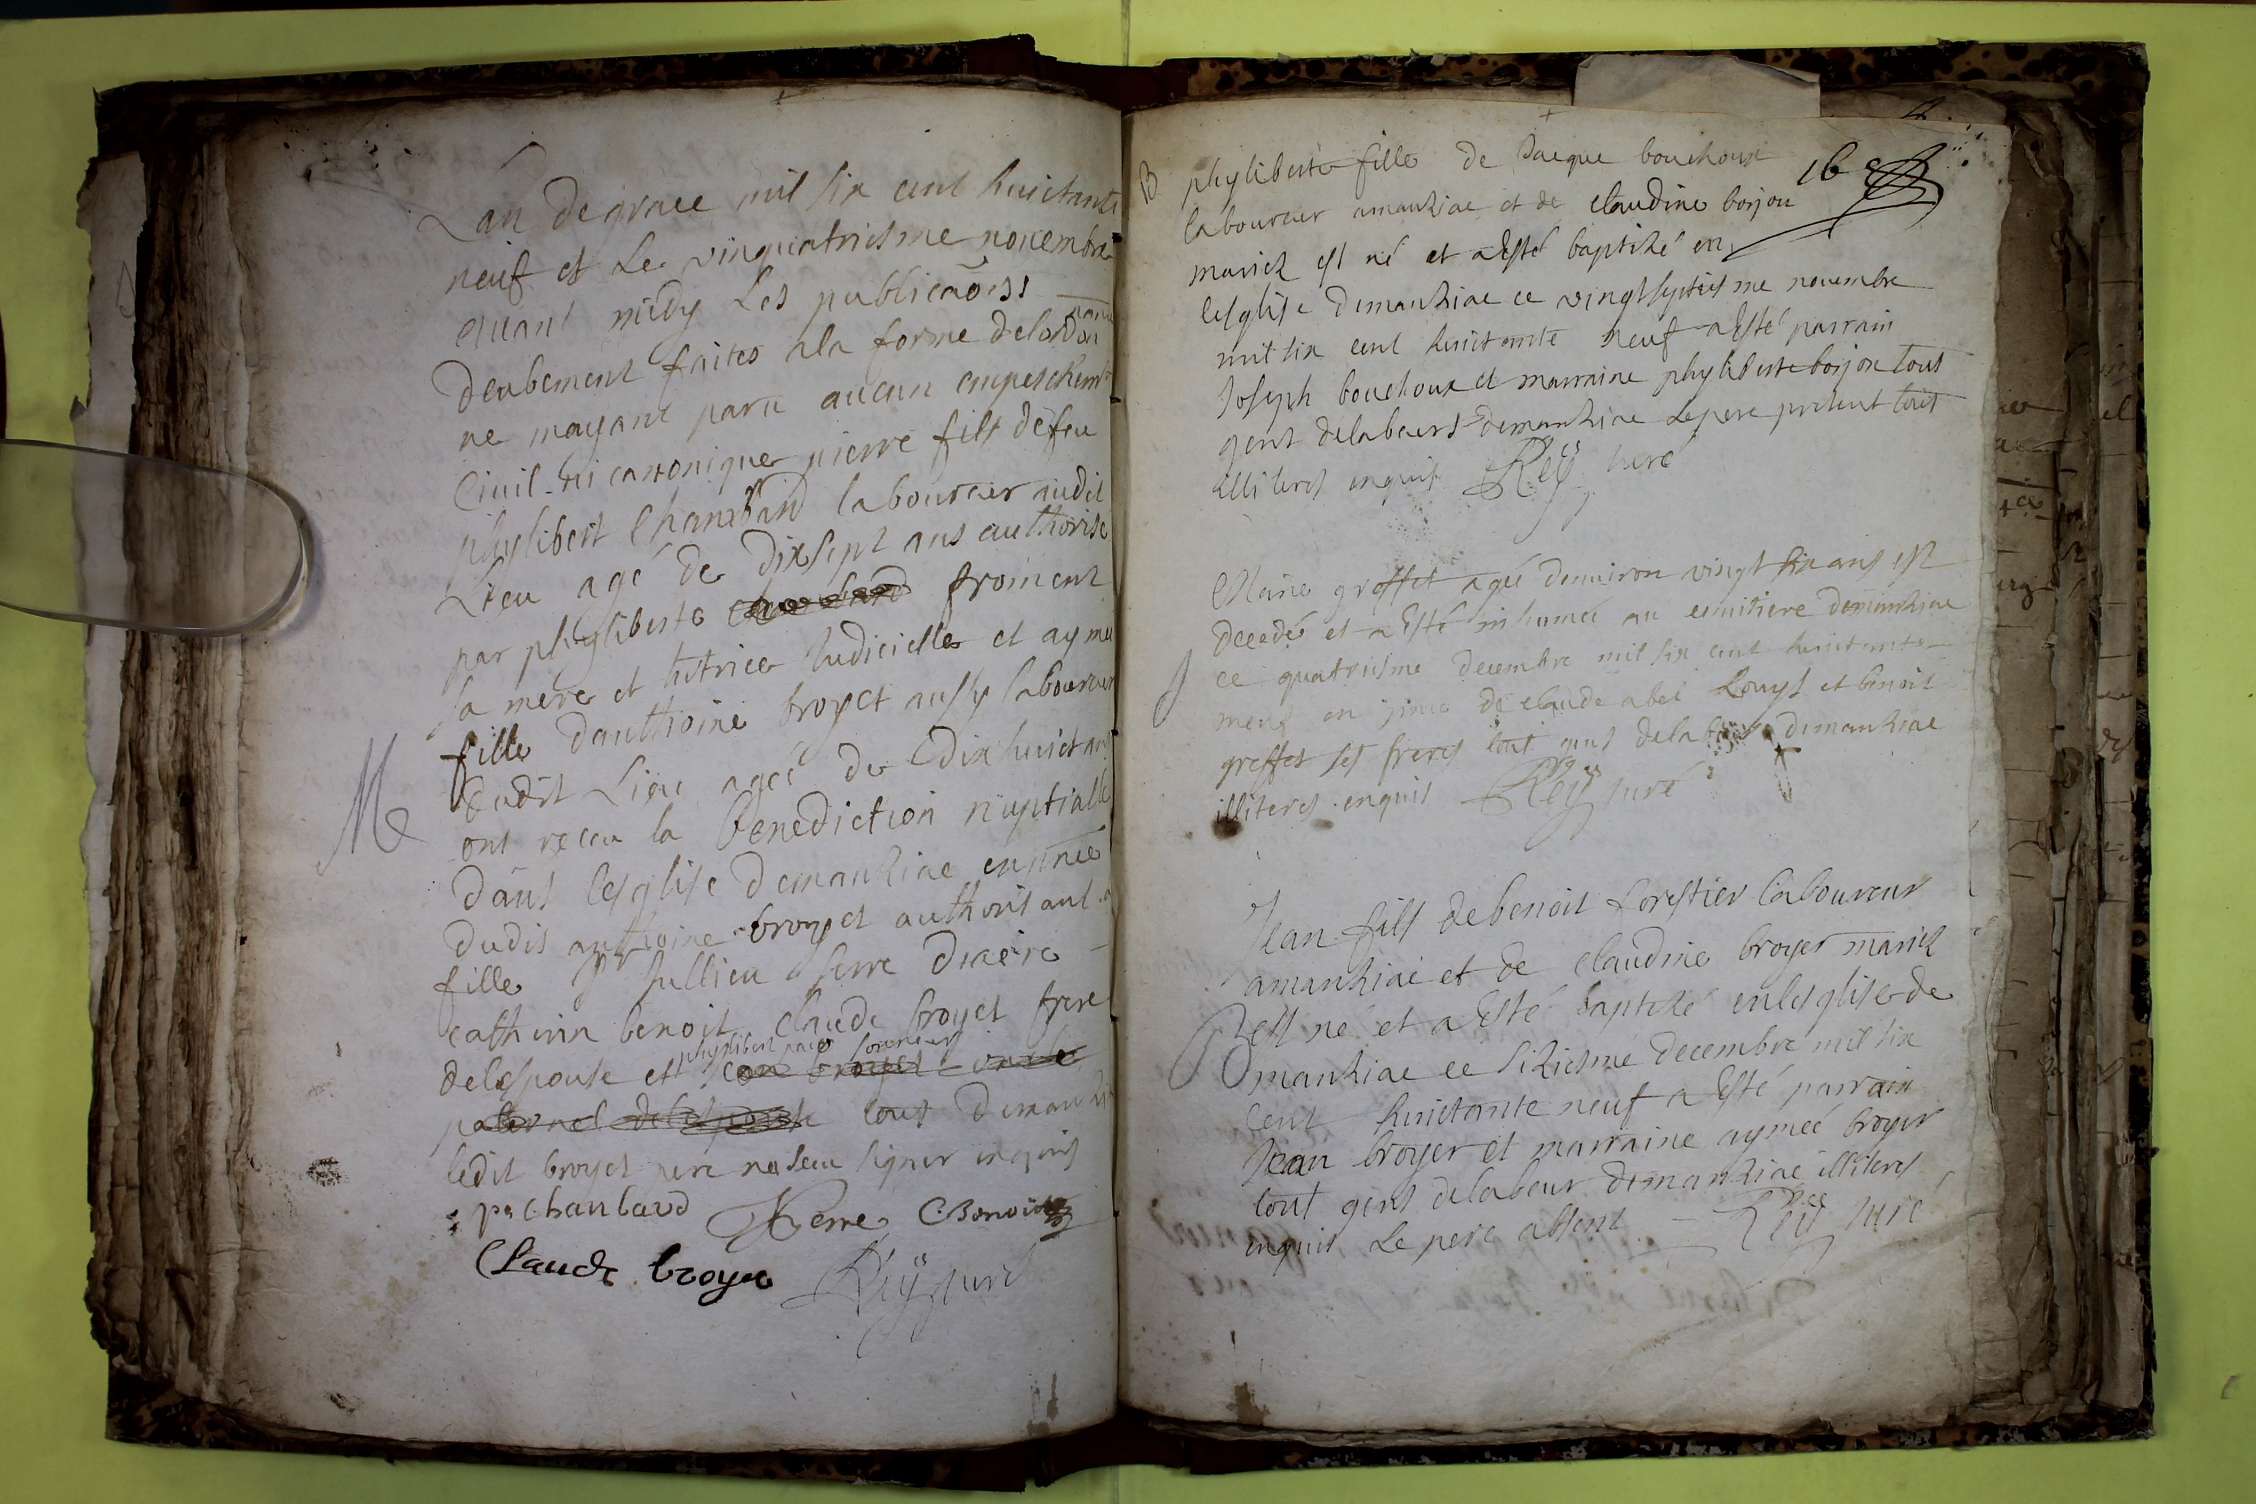 Lan de grace mil six cent huictante
neuf et Le vinquatriesme novembre
avant midy Les publicaōns
deubement faites ala forme delordon
nance
ne mayant paru aucun empeschemt
Civil ni canonique pierre fils defeu
phylibert Chambard laboureur audit
Lieu agé de dixsept ans authorisé
par phyliberte froment
sa mere et tutrice Judicielle et aymee
fille danthoine broyet aussy laboureur
dudit Lieu agée de dixhuict ans
M
ont receu la benediction nuptialle
dans lesglise demanziac enpnce
dudit anthoine broyet authorisant sa
fille Jullien serre diacre
catherin benoit claude broyet frere
delespouse et phylibert
jean broyet oncle
paternel delespouse tous demanziac
ledit broyet pere na sceu signer enquis
pe Chanbard JSerre CBenoist
Claude broyer Reÿ curé
B
phyliberte fille de Jacque bouchoux
168
laboureur amanziac et de claudine borjon
mariez est né et aesté baptizé en
lesglise demanziac ce vingtseptiesme novembre
mil six cent huictante neuf aesté parrain
Joseph bouchoux et marraine phyliberte borjon tous
gens delabeurs demanziac Lepere present tous
illiteres enquis Reÿ curé
greffet agée denviron vingt six ans est
decedée et a esté inhumée au cemitiere demanziac
ce quatriesme decembre mil six cent huictante
J
neuf en pnce de claude abel Louys et benoit
greffet ses freres tout gens delabeur demanziac
illiteres enquis Reÿ curé
Jean fils debenoit forestier laboureur
amanziac et de claudine broyer mariez
B
est né et a esté baptizé enlesglise de
manziac ce siziesme decembre mil six
cent huictante neuf a esté parrain
Jean broyer et marraine aymée broyer
tout gens delabeur demanziac illiteres
enquis Le pere absent Reÿ curé